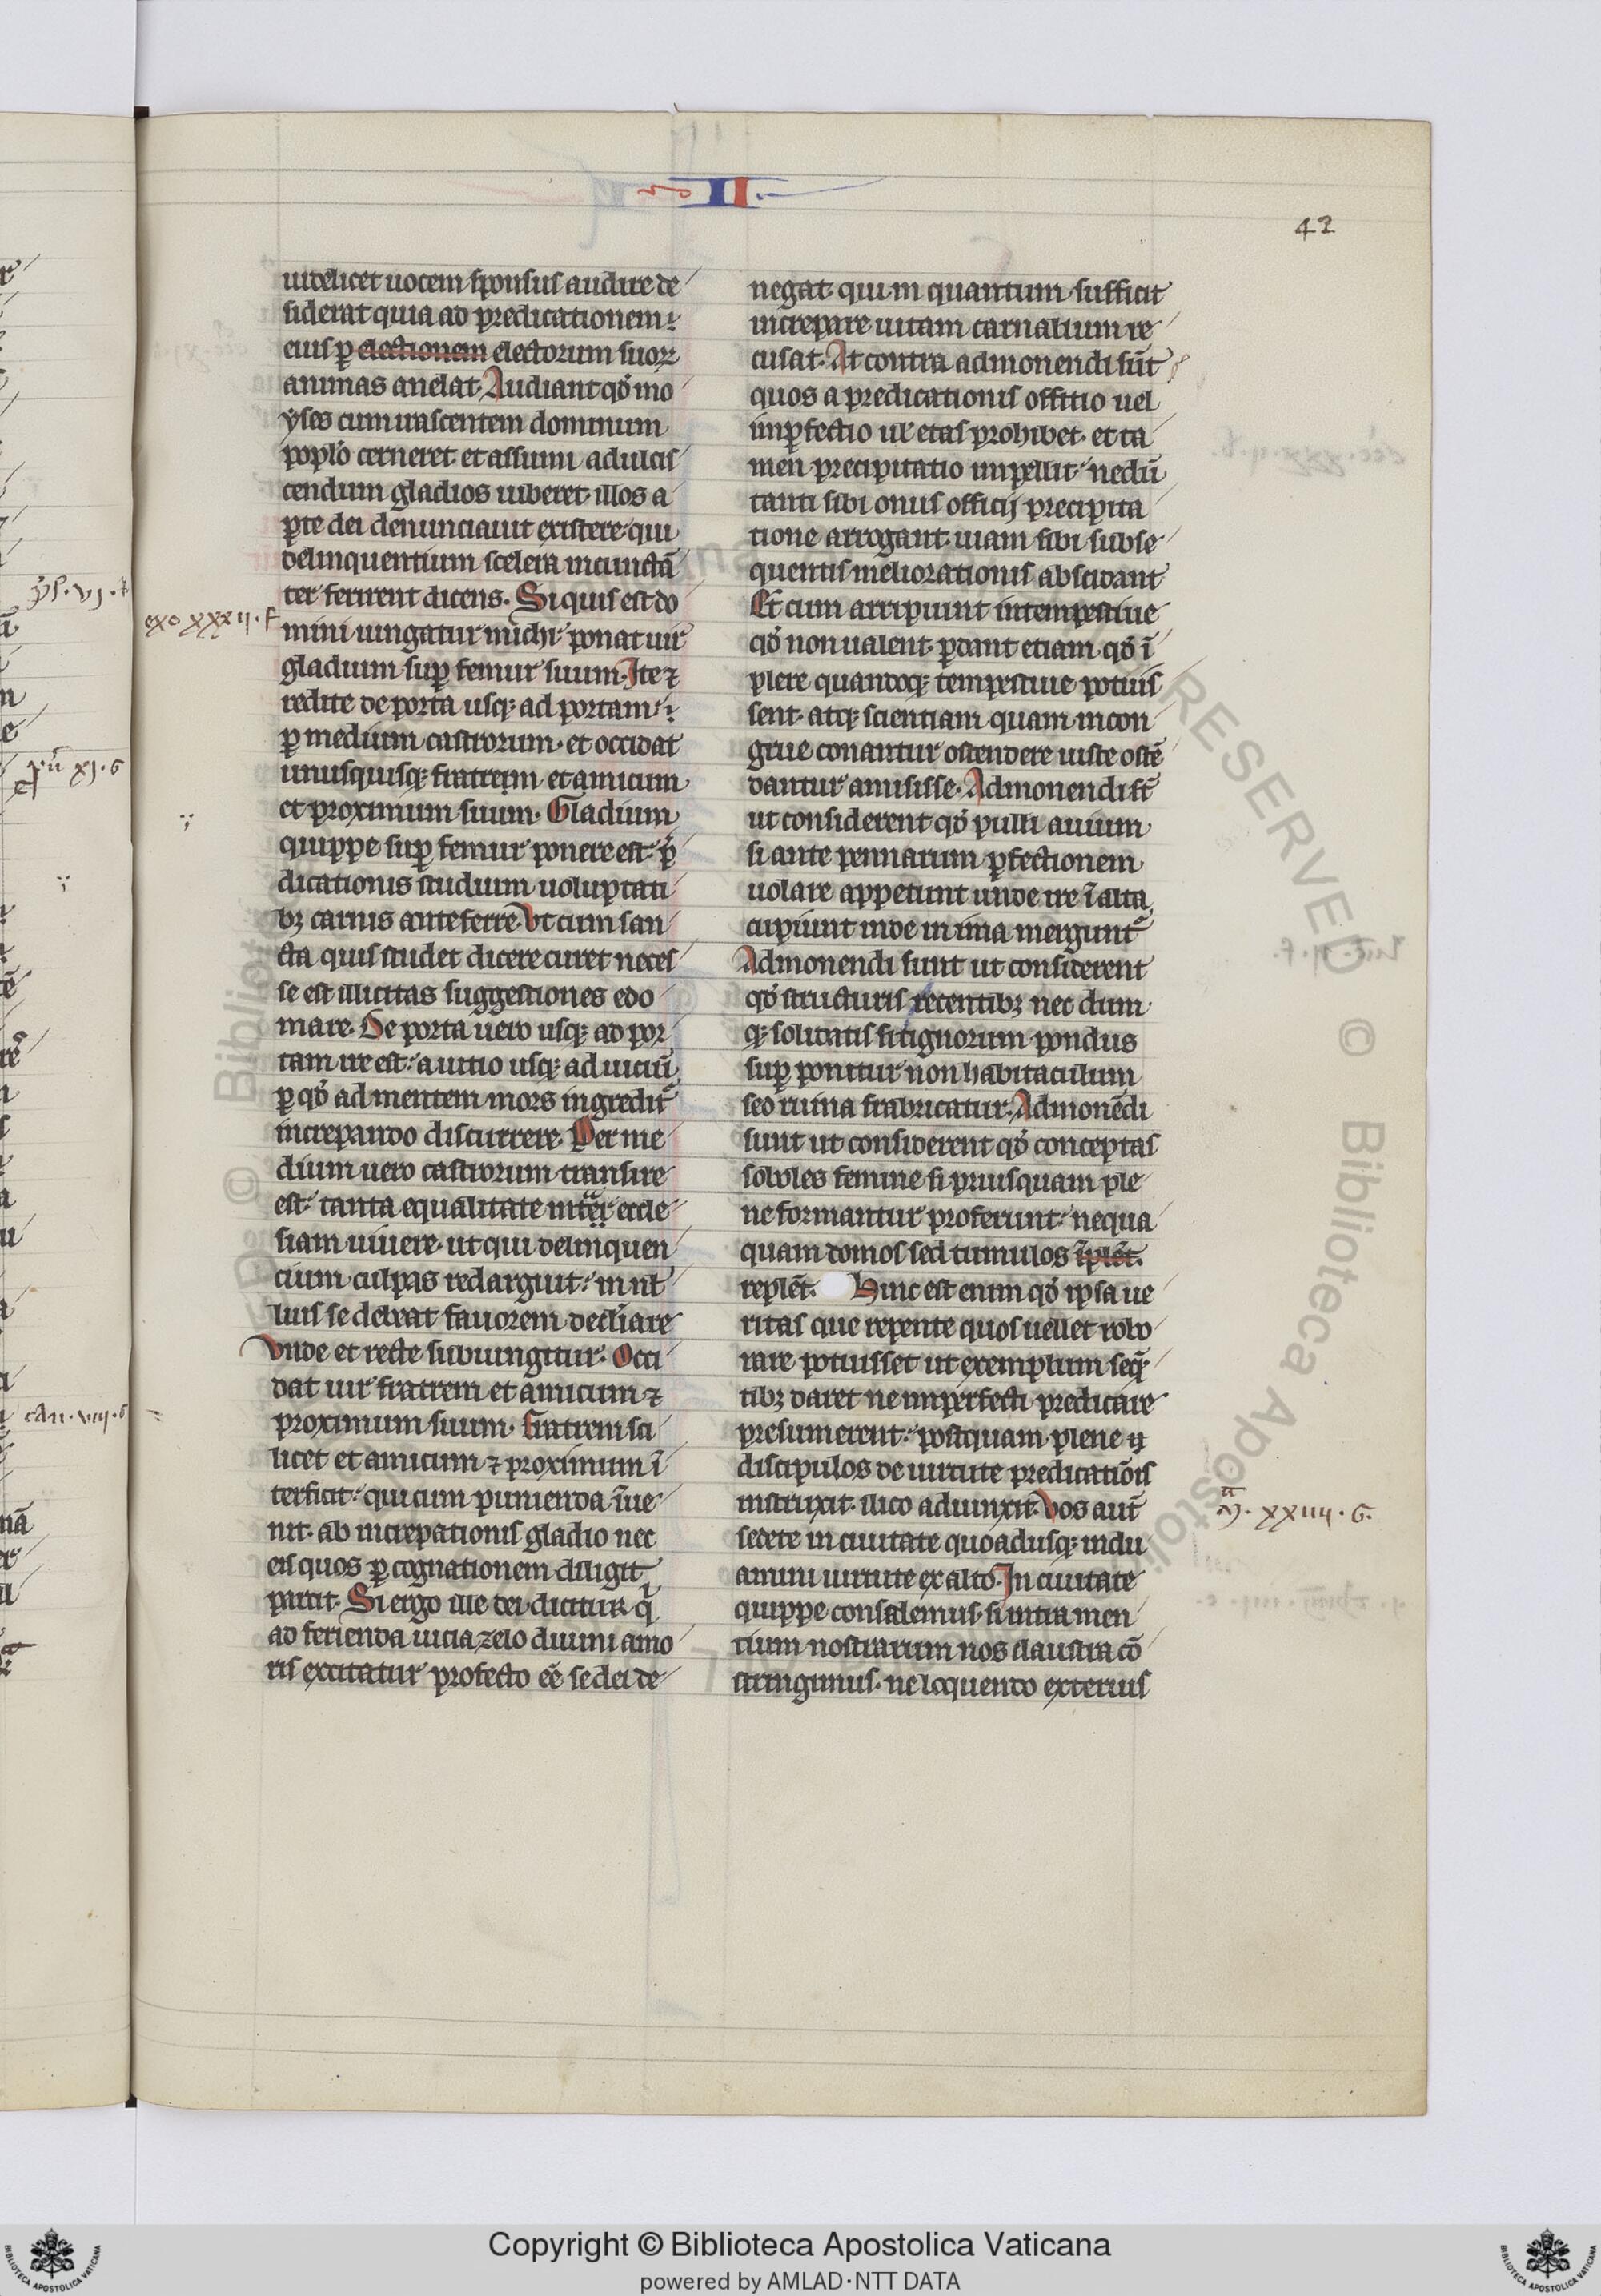 II
42
uidelicet uocem sponsus audire de
siderat quia ad predicationem
eius ꝑ electionem electorum suoꝝ
animas anelat. Audiant qđ mo
yses cum irascentem dominum
poplo cerneret et assumi ad ulcis
cendum gladios iuberet illos a
ꝑte dei denunciauit existere qui
delinquentium scelera incunctā
ter ferirent dicens. Si quis est do
mini iungatur michi ponat uir
gladium suꝑ femur suum. Ite ⁊
redite de porta usqꝫ ad portam
ꝑ medium castrorum. et occidat
unusquisqꝫ fratrem et amicum
et proximum suum. Gladium
quippe suꝑ femur ponere est p̄
dicationis studium uoluptati
bꝫ carnis anteferre. Vt cum san
cta quis studet dicere curet neces
se est illicitas suggestiones edo
mare. De porta uero usqꝫ ad por
tam ire est. a uitio usqꝫ ad uiciū
ꝑ qđ ad mentem mors ingredit᷑
increpando discurrere. Per me
dium uero castrorum transire
est. tanta equalitate intra eccle
siam uiuere. ut qui delinquen
cium culpas redarguit. in nł
lius se debeat fauorem decliare
Vnde et recte subiungitur. Occi
dat uir fratrem et amicum ⁊
proximum suum. Fratrem sci
licet et amicum ⁊ proximum ī
terficit. qui cum punienda īue
nit. ab increpationis gladio nec
eis quos ꝑ cognationem diligit
parcit. Si ergo ille dei dicitur q̇
ad ferienda uicia zelo diuini amo
ris excitatur profecto eē se dei de
negat qui in quantum sufficit
increpare uitam carnalium re
cusat. At contra admonendi sūt
quos a predicationis offitio uel
imꝑfectio uł etas prohibet. et ta
men precipitatio impellit. nedū
tanti sibi onus officij precipita
tione arrogant. uiam sibi subse
quentis meliorationis abscidant
Et cum arripiunt intempestiue
qđ non ualent. ꝑdant etiam qđ ī
plere quandoqꝫ tempestiue potuis
sent. atqꝫ scientiam quam incon
grue conantur ostendere iuste ostē
dantur amisisse. Admonendi sт̄
ut considerent qđ pulli auium
si ante pennarum ꝑfectionem
uolare appetunt unde ire ī alta
cupiunt inde in ima mergunt᷑
Admonendi sunt ut considerent
qđ structuris recentibꝫ nec dum
qꝫ solidatis si tignorum pondus
suꝑ ponitur non habitaculum
sed ruina frabricatur. Admonēdi
sunt ut considerent qđ conceptas
soboles femine si priusquam ple
ne formantur proferunt. nequa
quam domos sed tumulos īplēt.
replēt. Hinc est enim qđ ipsa ue
ritas que repente quos uellet robo
rare potuisset ut exemplum seq̄
tibꝫ daret ne imperfecti predicare
presumerent. postquam plene
discipulos de uirtute predicatiōis
instruxit. ilico adiunxit. Vos aut̄
sedete in ciuitate quoadusqꝫ indu
amini uirtute ex alto. In ciuitate
quippe considemus. si intra men
tium nostrarum nos claustra cō
stringimus. ne loquendo exterius
exo xxxii. f
xxiiii. G.
ps. vi.
xi. G
can. viii. G
RESERVED © Biblioteca Apostolica
Copyright © Biblioteca Apostolica Vaticana
powered by AMLAD·NTT DATA
BIBLIOTECA APOSTOLICA VATICANA
BIBLIOTECA APOSTOLICA VATICANA